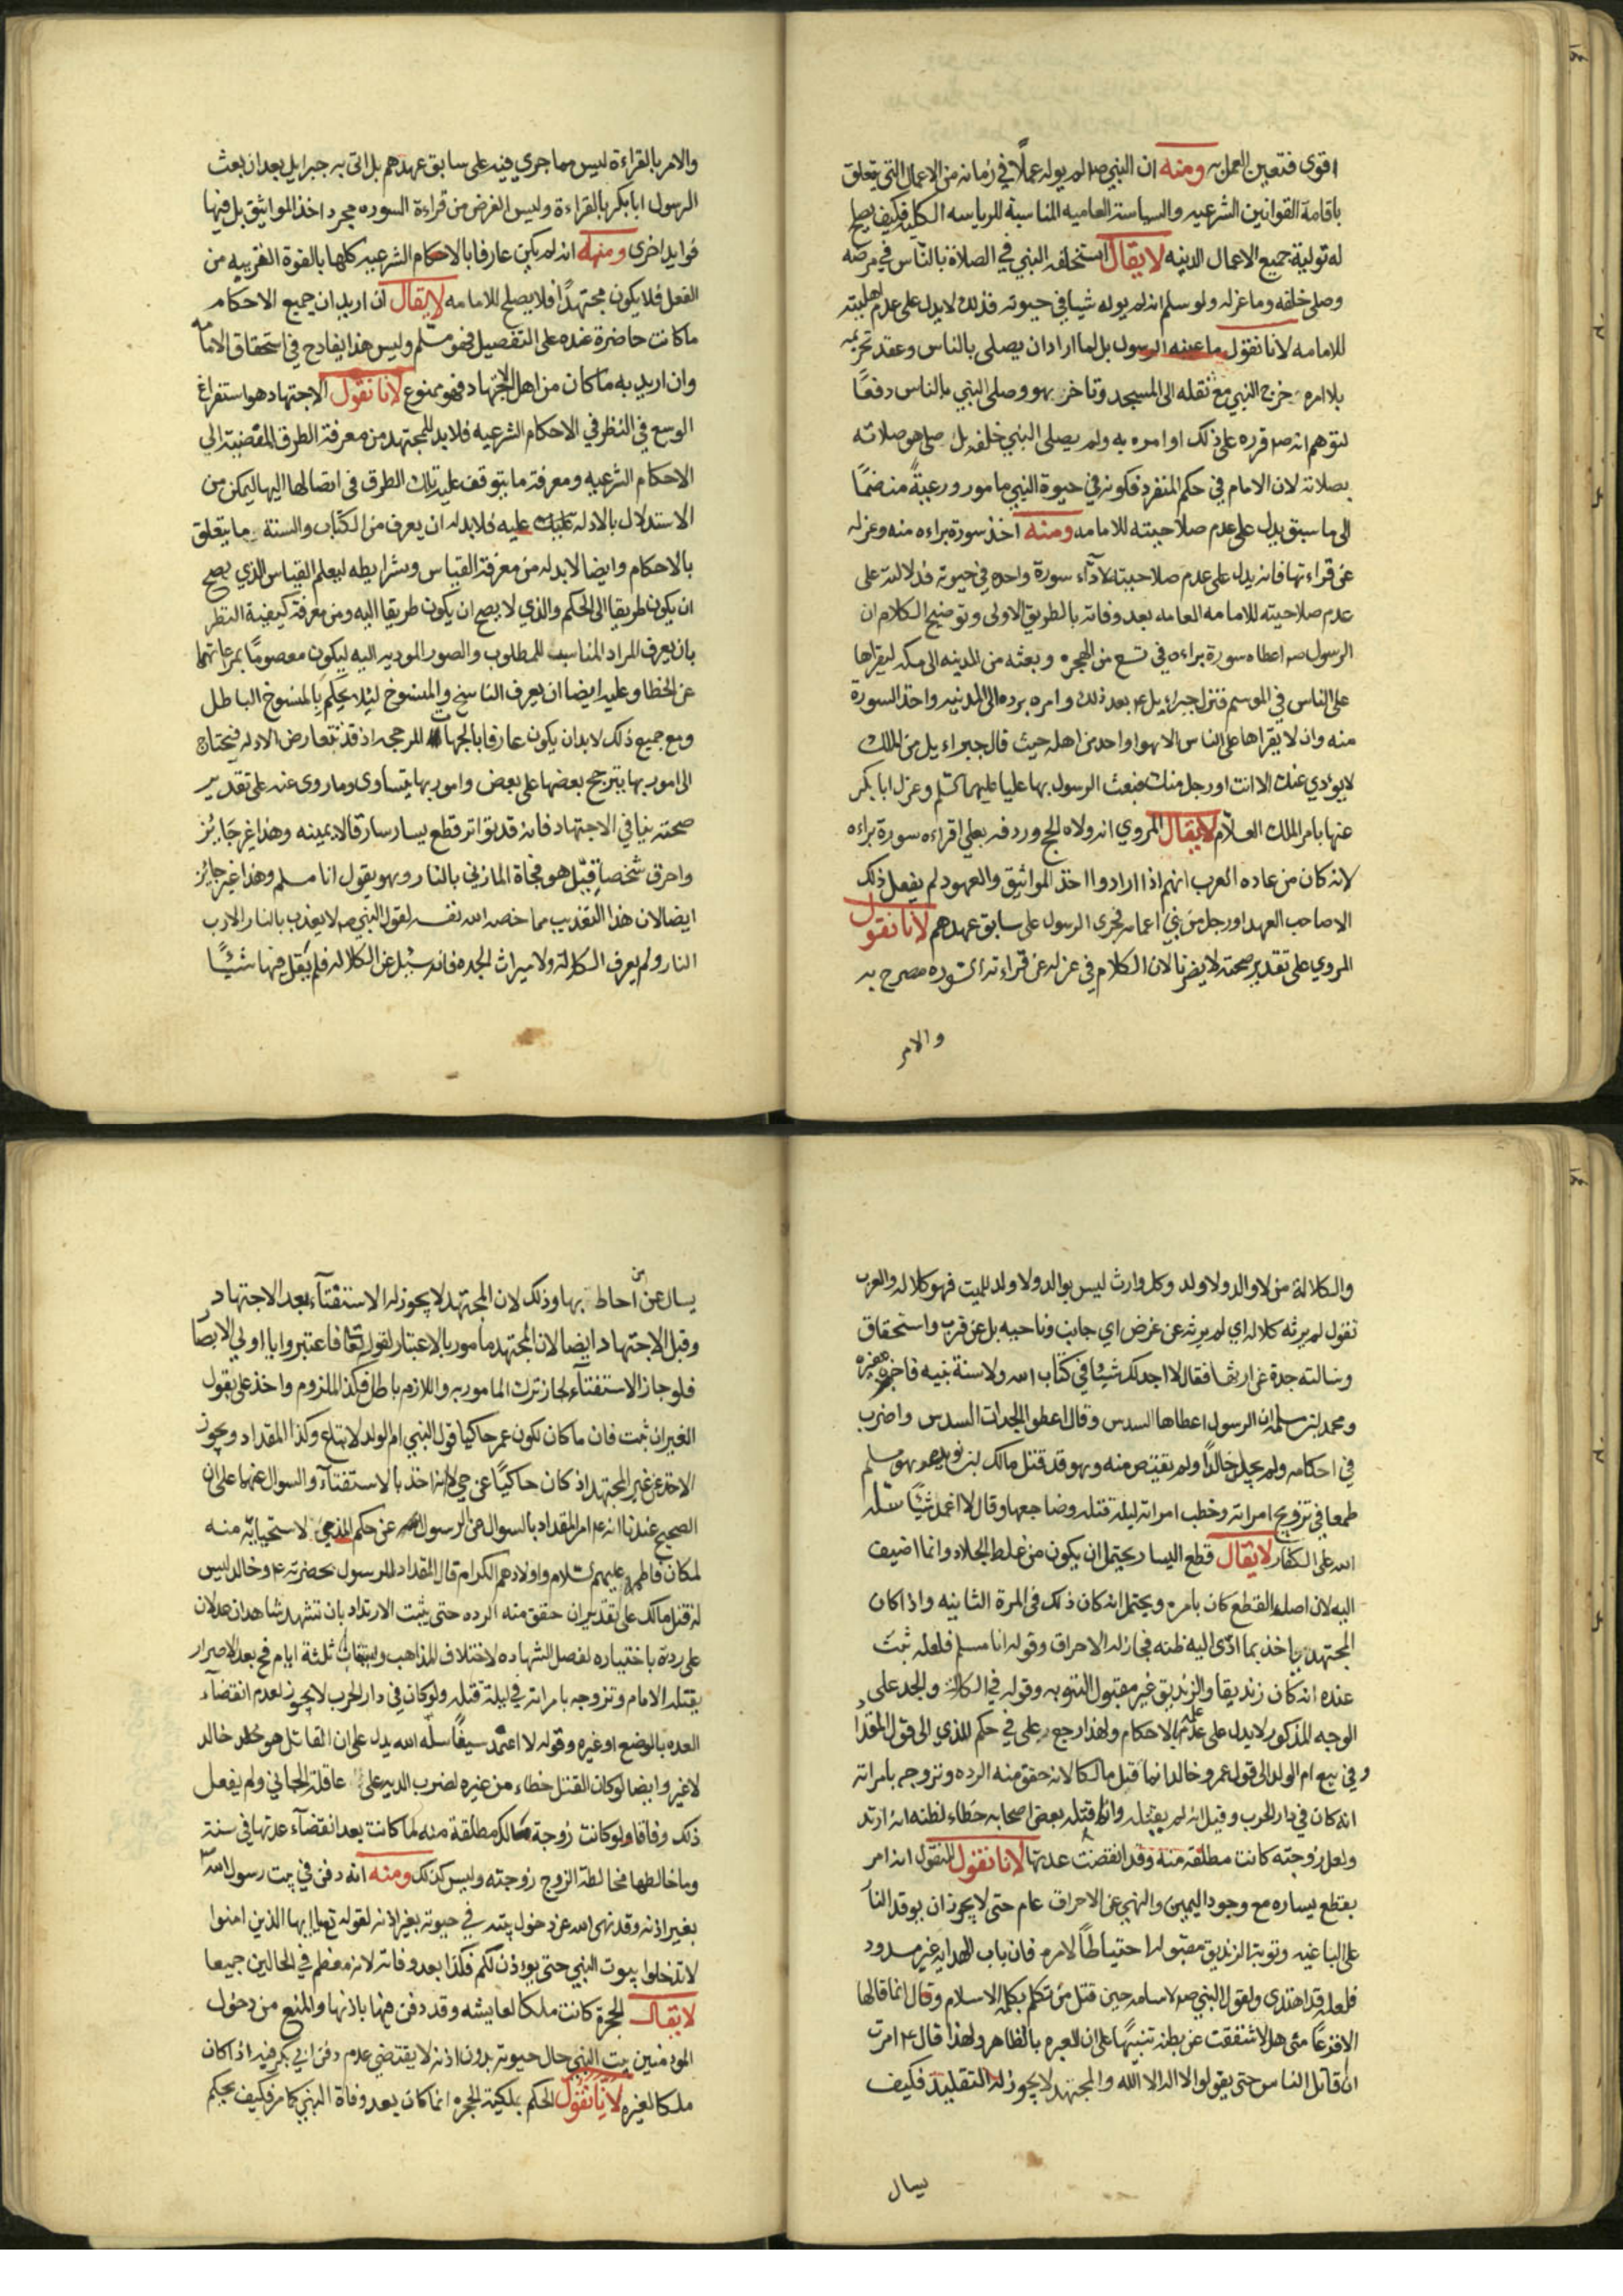 اقوى فتعين العمل به ومنه ان النبي صلم لم يوله عملًا في زمانه من الاعمال التي يتعلق
باقامة القوانين الشرعيه والسياسة العاميه المناسبة للرياسه الكليه فكيف يصلح
له تولية جميع الاعمال الدينه لا يقال استخلفه النبي في الصلاة بالناس في مرضه
وصلى خلفه وما عزله ولو سلم انه لم يوله شيا في حيوته فذلك لا يدل على عدم اهليته
للامامه لانا نقول ما عينه الرسول بل لما اراد ان يصلي بالناس وعقد تحريمه
بلا امره خرج النبي مع ثقله الى المسجد وتاخر بهو وصلى النبي بالناس دفعًا
لتوهم انه صلم قرره على ذلك او امره به ولم يصلى النبي خلفه بل صلى هو صلاته
بصلاته لان الامام في حكم المنفرد فكونه في حيوة النبي مامور ورعيةً منضمًا
الى ما سبق يدل على عدم صلاحيته للامامه ومنه اخذ سورة براءه منه وعزله
عن قراءتها فانه يدل على عدم صلاحيته لادآء سورة واحده في حيوته فدلالته على
عدم صلاحيته للامامه العامه بعد وفاته بالطريق الاولى وتوضيح الكلام ان
الرسول صم اعطاه سورة براءه في تسع من الهجره وبعثه من المدينه الى مكه ليقراها
على الناس في الموسم فنزل جبراءيل عم بعد ذلك وامره برده الى المدينه واخذ السورة
منه وان لا يقراها على الناس الا هو او احد من اهله حيث قال جبراءيل من الملك
لا يؤدي عنك الا انت او رجل منك فبعث الرسول بها عليا عليهما السلم وعزل ابا بكر
عنها بامر الملك العلام لا يقال المروي انه ولاه الحج وردفه بعلي اقراءه سورة براءه
لانه كان من عاده العرب انهم اذا ارادوا اخذ المواثيق والعهود لم يفعل ذلك
الا صاحب العهد او رجل من بني اعمامه فجرى الرسول على سابق عهدهم لانا نقول
المروي على تقدير صحته لا يضرنا لان الكلام في عزله عن قراءته السوره مصرح به
والامر
والامر بالقراءة ليس مما جرى فيه على سابق عهدهم بل اتى به جبرايل بعد ان بعث
الرسول ابا بكر بالقراءة وليس الغرض من قراءة السوره مجرد اخذ المواثيق بل فيها
فوايد اخرى ومنه انه لم يكن عارفا بالاحكام الشرعيه كلها بالقوة القريبه من
الفعل فلا يكون مجتهدًا فلا يصلح للامامه لا يقال ان اريد ان جميع الاحكام
ما كانت حاضرة عنده على التفصيل فهو مسلم وليس هذا بقادح في استحقاق الامامه
وان اريد به ما كان من اهل الاجتهاد فهو ممنوع لانا نقول الاجتهاد هو استفراغ
الوسع في النظر في الاحكام الشرعيه فلا بد للمجتهد من معرفة الطرق المفضية الى
الاحكام الشرعيه ومعرفة ما يتوقف عليه تلك الطرق في ايصالها اليها ليمكن من
الاستدلال بالادله عليه فلا بد له ان يعرف من الكتاب والسنة ما يتعلق
بالاحكام وايضا لا بد له من معرفة القياس وشرايطه ليعلم القياس الذي يصح
ان يكون طريقا الى الحكم والذي لا يصح ان يكون طريقا اليه ومن معرفة كيفية النظر
بان يعرف المراد المناسب للمطلوب والصور المودية اليه ليكون معصومًا بمراعاتهما
عن الخطا وعليه ايضا ان يعرف الناسخ والمنسوخ ليلا يحكم بالمنسوخ الباطل
ومع جميع ذلك لا بد ان يكون عارفا بالجهات المرجحه اذ قد تتعارض الادله فيحتاج
الى امور بها يترجح بعضها على بعض وامور بها يتساوى وما روى عنه على تقدير
صحته ينافي الاجتهاد فانه قد يؤاثر قطع يسار سارق الا يمينه وهذا غير جايز
واحرق شخصا قيل هو فجاة المازني بالنار وهو يقول انا مسلم وهذا غير جايز
ايضا لان هذا التعذيب مما خصه الله نفسه لقول النبي صم لا يعذب بالنار الا رب
النار ولم يعرف الكلالة ولا ميراث الجده فانه سيل عن الكلاله فلم يقل فيها شيًا
والكلالة من لا والد ولا ولد وكل وارث ليس بوالد ولا ولد للميت فهو كلاله والعرب
تقول لم يرثه كلاله اي لم يرثه عن عرض اي جانب وناحيه بل عن قرب واستحقاق
وسالته جدة عن ارثها فقال لا اجد لك شيئا في كتاب الله ولا سنة نبيه فاخبره مغيره
ومحمد بن سلمه ان الرسول اعطاها السدس وقال اعطوا الجدات السدس واضرب
في احكامه ولم يحد خالدًا ولم يقتص منه وهو قد قتل مالك بن نويره وهو مسلم
طمعا في تزويج امراته وخطب امراته ليلة قتله وضاجعها وقال لا اغمد شيًا سله
الله على الكفار لا يقال قطع اليسار يحتمل ان يكون من غلط الجلاد وانما اضيف
اليه لان اصله القطع كان بامره ويحتمل انه كان ذلك في المرة الثانيه واذا كان
المجتهد ياخذ بما ادى اليه ظنه فجاز له الاحراق وقوله انا مسلم فلعله ثبت
عنده انه كان زنديقا والزنديق غير مقبول التوبه وقوله في الكلالة والجد على
الوجه المذكور لا يدل على عدم علمه بالاحكام ولهذا رجع على في حكم المذي الى قول المقداد
وفي بيع ام الولد الى قول عمر وخالد انما قتل مالكا لانه حقق منه الرده وتزوجه بامراته
انه كان في دار الحرب وقيل انه لم يقتله وانما قتله بعض اصحابه خطاء لظنه انه ارتد
ولعل زوجته كانت مطلقه منه وقد انقضت عدتها لانا نقول المنقول انه امر
بقطع يساره مع وجود اليمين والنهي عن الاحراق عام حتى لا يجوز ان يوقد النار
على الباغيه وتوبة الزنديق مقبوله احتياطًا لامره فان باب الهدايه غير مسدود
فلعله قد اهتدى ولقول النبي صم لاسامه حين قتل من تكلم بكلمة الاسلام وقال انما قالها
الا فزعًا مني هلا شققت عن بطنه تنبيهًا على ان العبره بالظاهر ولهذا قال ع امرت
ان اقاتل الناس حتى يقولوا لا اله الا الله والمجتهد لا يجوز له التقليد فكيف
يسال
يسال عن من احاط بها وذلك لان المجتهد لا يجوز له الاستفتآء بعد الاجتهاد
وقبل الاجتهاد ايضا لان المجتهد مامور بالاعتبار لقوله تعا فاعتبروا يا اولي الابصار
فلو جاز الاستفتآء لجاز ترك المامور به واللازم باطل فكذا الملزوم واخذ على بقول
الغير ان ثبت فان ما كان لكون عمر حاكيا قول النبي ام الولد لا يتباع وكذا المقداد ويجوز
الاخذ عن غير المجتهد اذ كان حاكيًا عن حي لانه اخذ بالاستفتآء والسوال عنها على ان
الصحيح عندنا انه عم امر المقداد بالسوال عن الرسول عن حكم المذي لاستحيايه منه
لمكان فاطمه عليهم السلام واولادهم الكرام قال المقداد للرسول بحضرته ع وخالد ليس
له قتل مالك على تقدير ان حقق منه الرده حتى يثبت الارتداد بان تشهد شاهدان عدلان
على ردة باختياره لفصل الشهاده لاختلاف المذاهب ويستتاب ثلثة ايام فح بعد الاصرار
يقتله الامام وتزوجه بامراته في ليلة قتله ولو كان في دار الحرب لا يجوز لعدم انقضآء
العده بالوضع او غيره وقوله لا اغمد سيفًا سله الله يدل على ان القاتل هو خالد
لا غير وايضا لو كان القتل خطاء من غيره لضرب الديه على عاقلة الجاني ولم يفعل
ذلك وفاقا ولو كانت زوجة مالك مطلقة منه لما كانت بعد انقضآء عدتها في سنة
وما خالطها مخالطة الزوج زوجته وليس كذلك ومنه انه دفن في بيت رسول الله
بغير اذنه وقد نهى الله عن دخول بيته في حيوته بغير اذنه لقوله تعا يا ايها الذين امنوا
لا تدخلوا بيوت النبي حتى يوذن لكم فكذا بعد وفاته لانه معظم في الحالين جميعا
لا يقال الحجرة كانت ملكا لعايشه وقد دفن فيها باذنها والمنع من دخول
المومنين بيت النبي حال حيوته بدون اذنه لا يقتضي عدم دفن ابي بكر فيه اذا كان
ملكا لغيره لانا نقول الحكم بملكية الحجره انما كان بعد وفاة النبي كما مر فكيف يحكم